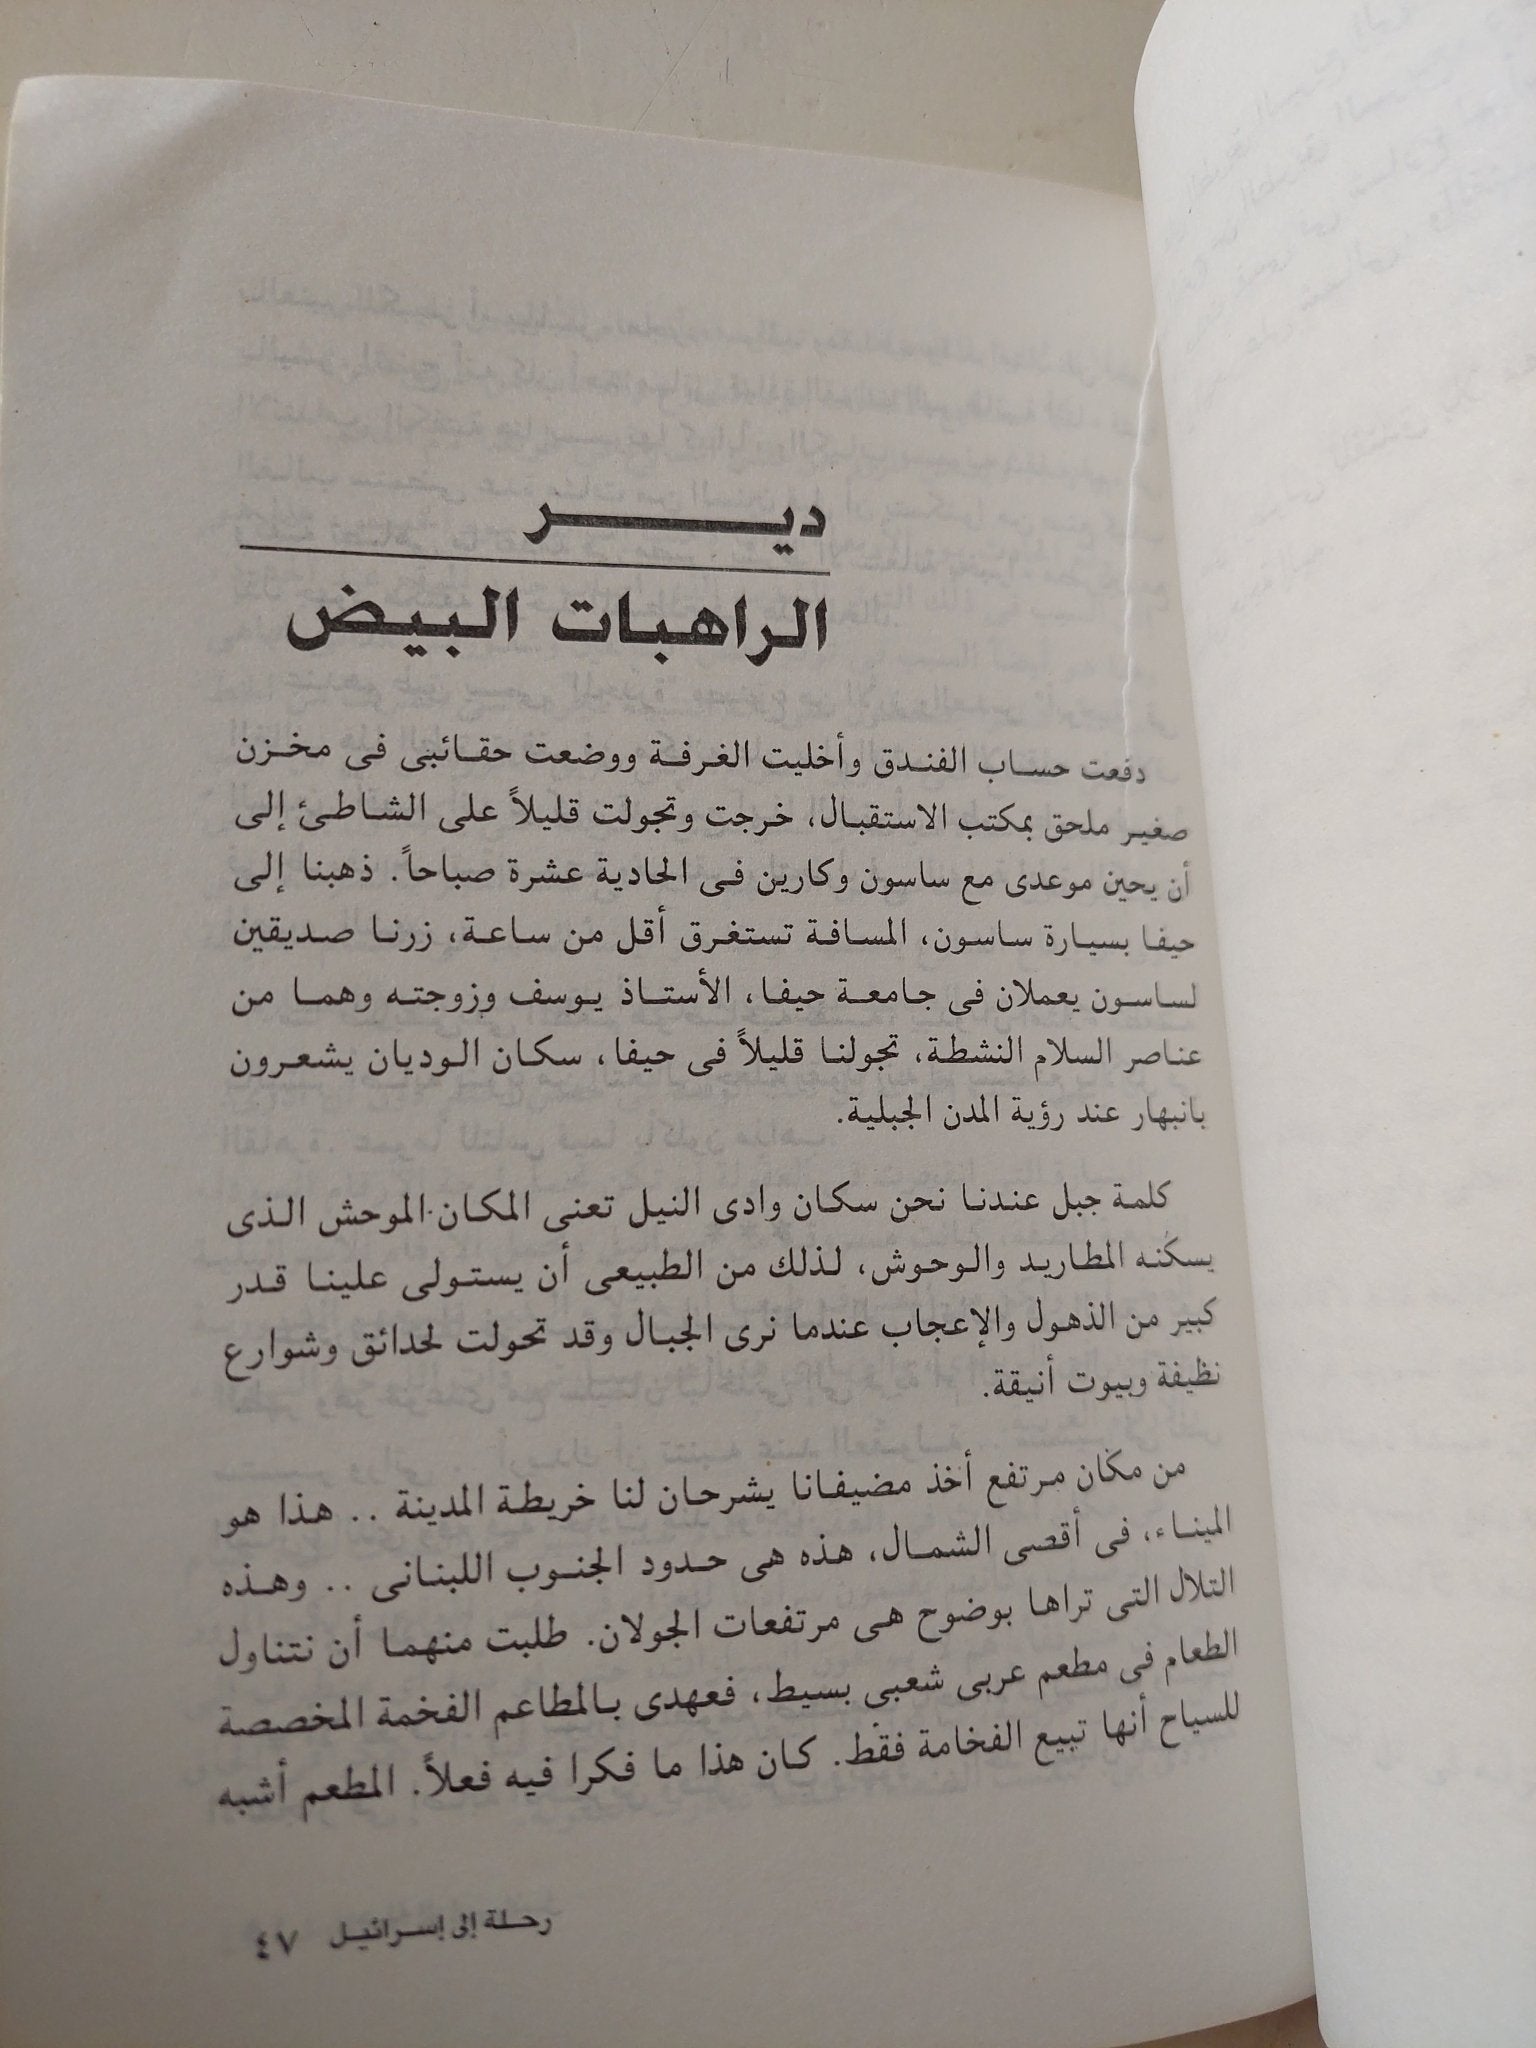 ديـــر
الراهبات البيض
دفعت حساب الفندق وأخليت الغرفة ووضعت حقائبى فى مخزن
صغير ملحق بمكتب الاستقبال، خرجت وتجولت قليلاً على الشاطئ إلى
أن يحين موعدى مع ساسون وكارين فى الحادية عشرة صباحاً. ذهبنا إلى
حيفا بسيارة ساسون، المسافة تستغرق أقل من ساعة، زرنا صديقين
لساسون يعملان فى جامعة حيفا، الأستاذ يوسف وزوجته وهما من
عناصر السلام النشطة، تجولنا قليلاً فى حيفا، سكان الوديان يشعرون
بانبهار عند رؤية المدن الجبلية.
كلمة جبل عندنا نحن سكان وادى النيل تعنى المكان الموحش الذى
يسكنه المطاريد والوحوش، لذلك من الطبيعى أن يستولى علينا قدر
كبير من الذهول والإعجاب عندما نرى الجبال وقد تحولت لحدائق وشوارع
نظيفة وبيوت أنيقة.
من مكان مرتفع أخذ مضيفانا يشرحان لنا خريطة المدينة .. هذا هو
الميناء، فى أقصى الشمال، هذه هى حدود الجنوب اللبنانى .. وهذه
التلال التى تراها بوضوح هى مرتفعات الجولان. طلبت منهما أن نتناول
الطعام فى مطعم عربى شعبى بسيط، فعهدى بالمطاعم الفخمة المخصصة
للسياح أنها تبيع الفخامة فقط. كان هذا ما فكرا فيه فعلاً. المطعم أشبه
رحلة إلى إسرائيل ٤٧